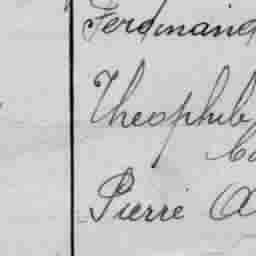 Ferdinand
Theophile
Pierre